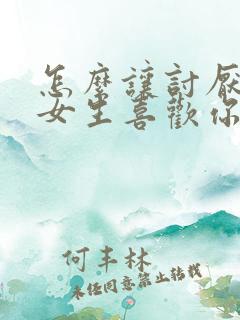 怎麼讓討厭
女生喜歡你
何丰林
未经同意禁止转载